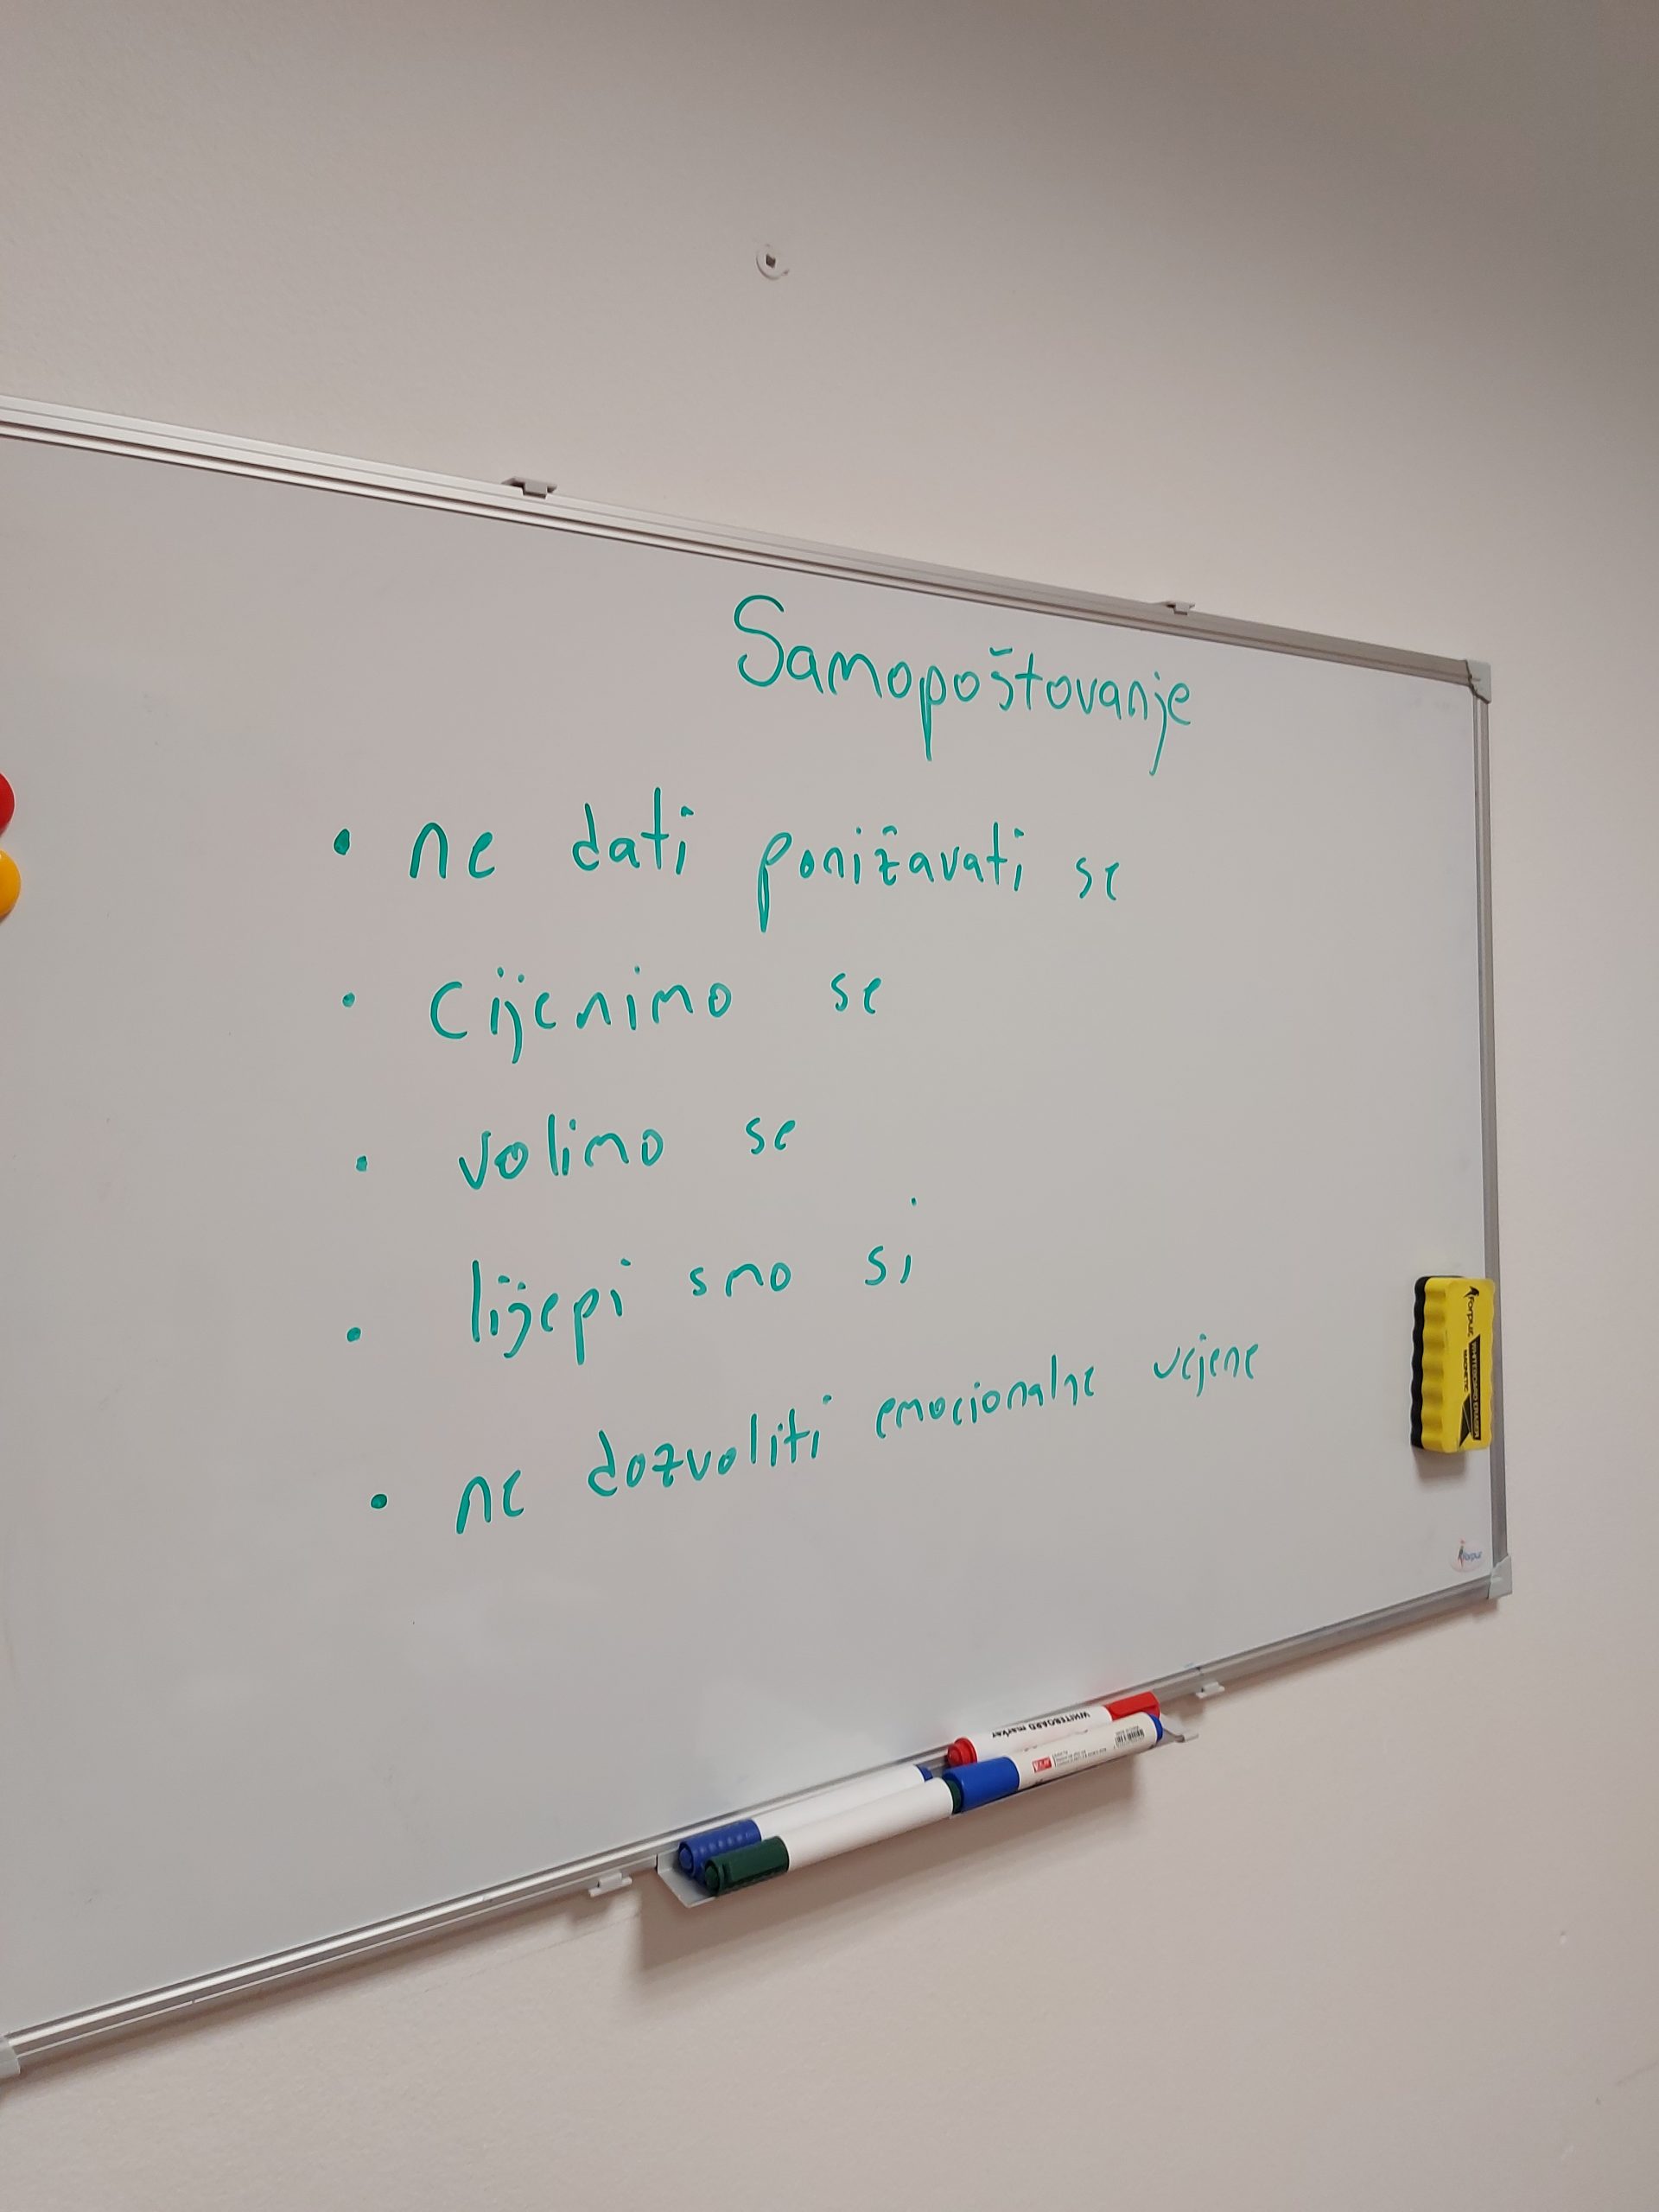 Samopoštovanje
• ne dati ponižavati se
• cijenimo se
• volimo se
• lijepi smo si
• ne dozvoliti emocionalne ucjene
Forpus
WHITEBOARD ERASER
MAGNETIC
Forpus
WHITEBOARD marker